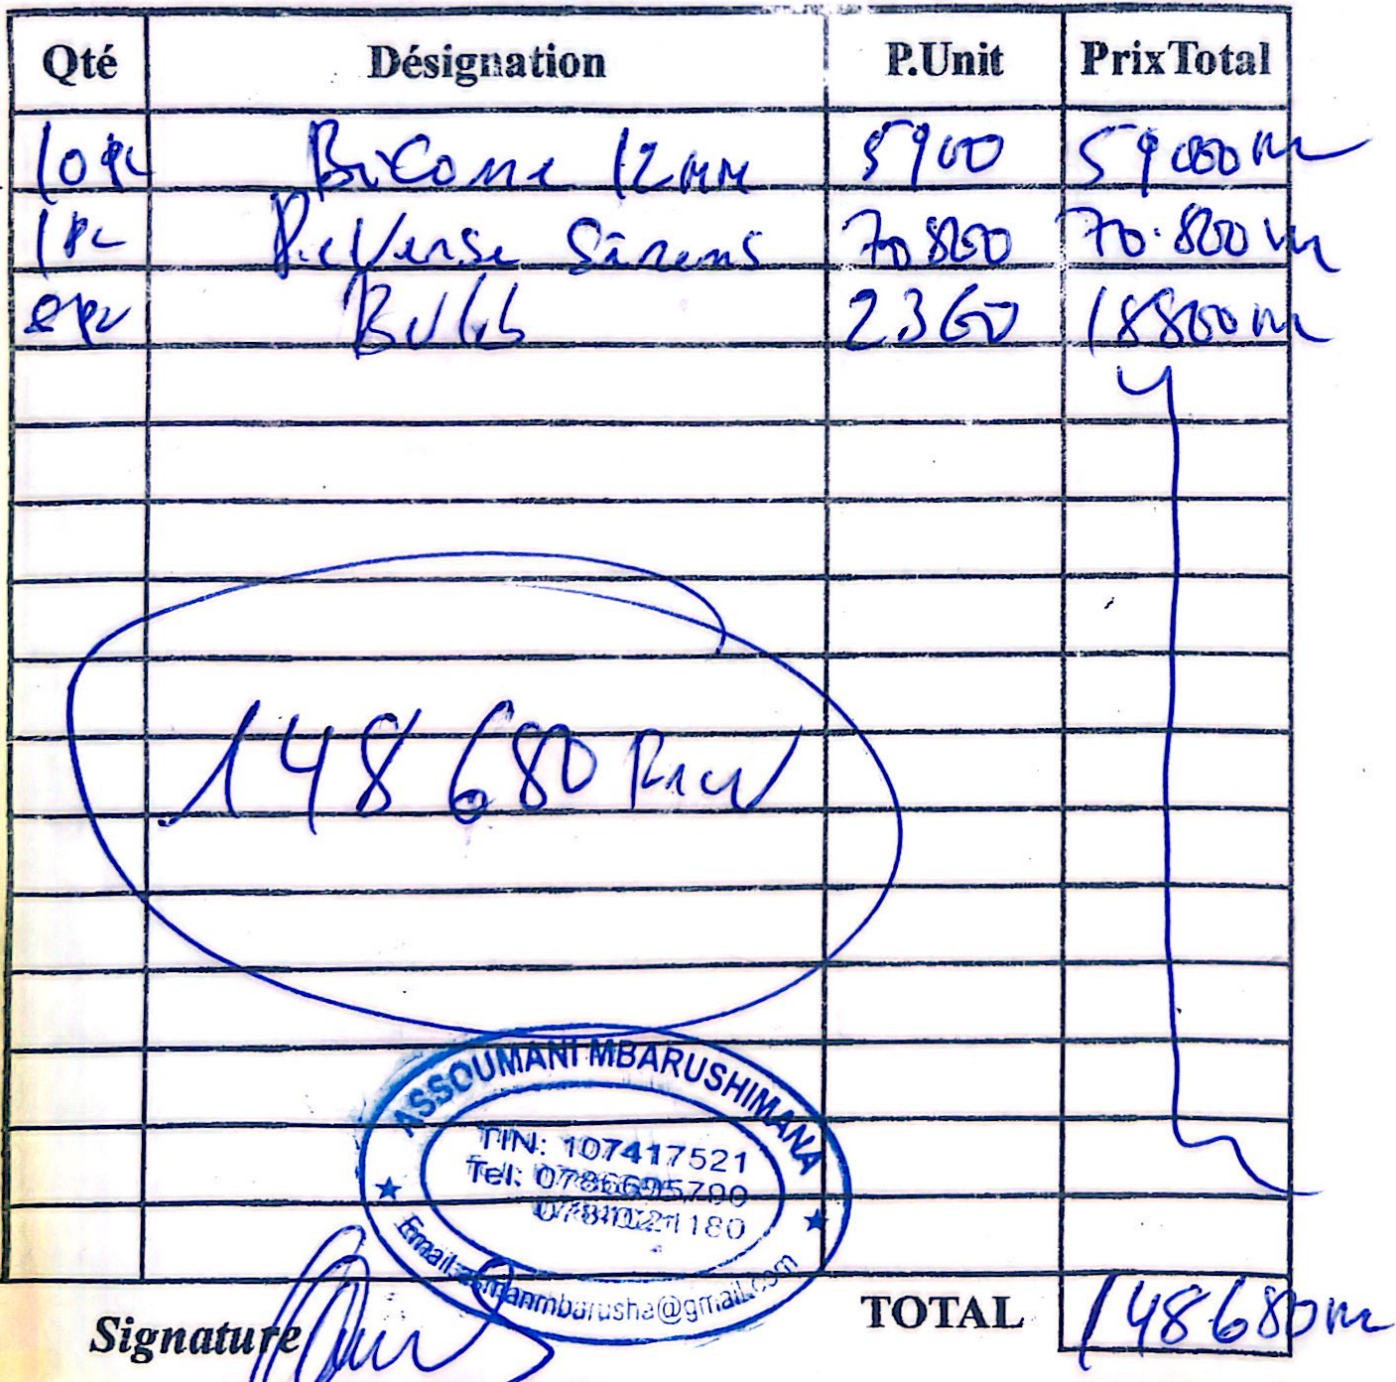 Qté Désignation P.Unit PrixTotal
10 pc Bicone 12mm 5900 59000
1 pc ReVerse Sirens 70800 70.800
8 pc Bulb 2360 18800
148 680 Rwf
ASSOUMANI MBARUSHIMANA
TIN: 107417521
Tel: 0786695700
1180
Email: @gmail.com
Signature TOTAL 148680